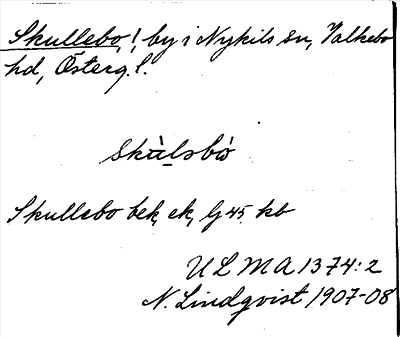 Skullebo, !, by i Nykils sn, Valkebo
hd, Österg. l.
skùlsbò
Skullebo bek, ek, lj 45 kb
ULMA 1374:2
N. Lindqvist 1907-08